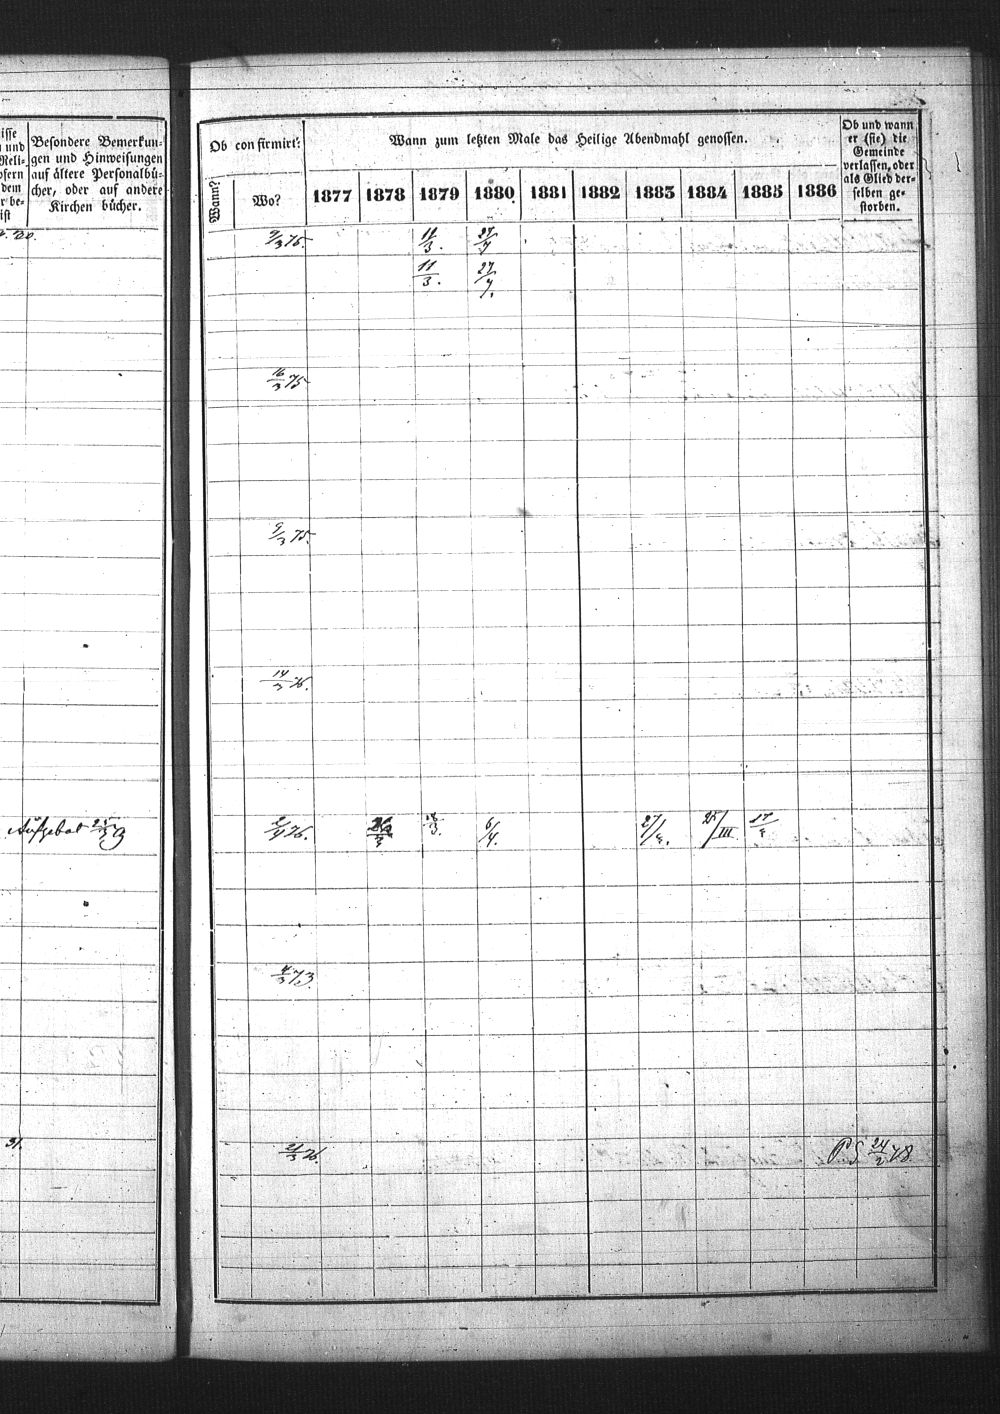 Besondere Bemerkun-
gen und Hinweisungen
auf ältere Personalbü-
cher, oder auf andere
Kirchen bücher.
Ob confirmirt:
Wann?
Wo?
Wann zum letzten Male das Heilige Abendmahl genossen.
1877 1878 1879 1880 1881 1882 1883 1884 1885 1886
Ob und wann
er (sie) die
Gemeinde
verlassen, oder
als Glied der-
selben ge-
storben.
9/3 76. 11/3. 27/4
11/3. 27/4.
16/3 75
9/3 75.
14/3 76.
Aufgebot 25/3 2/4 76. 18/3. 6/4. 27/4. 25/III 17/4
4/3 73
31. 21/3 76. 24/2 78